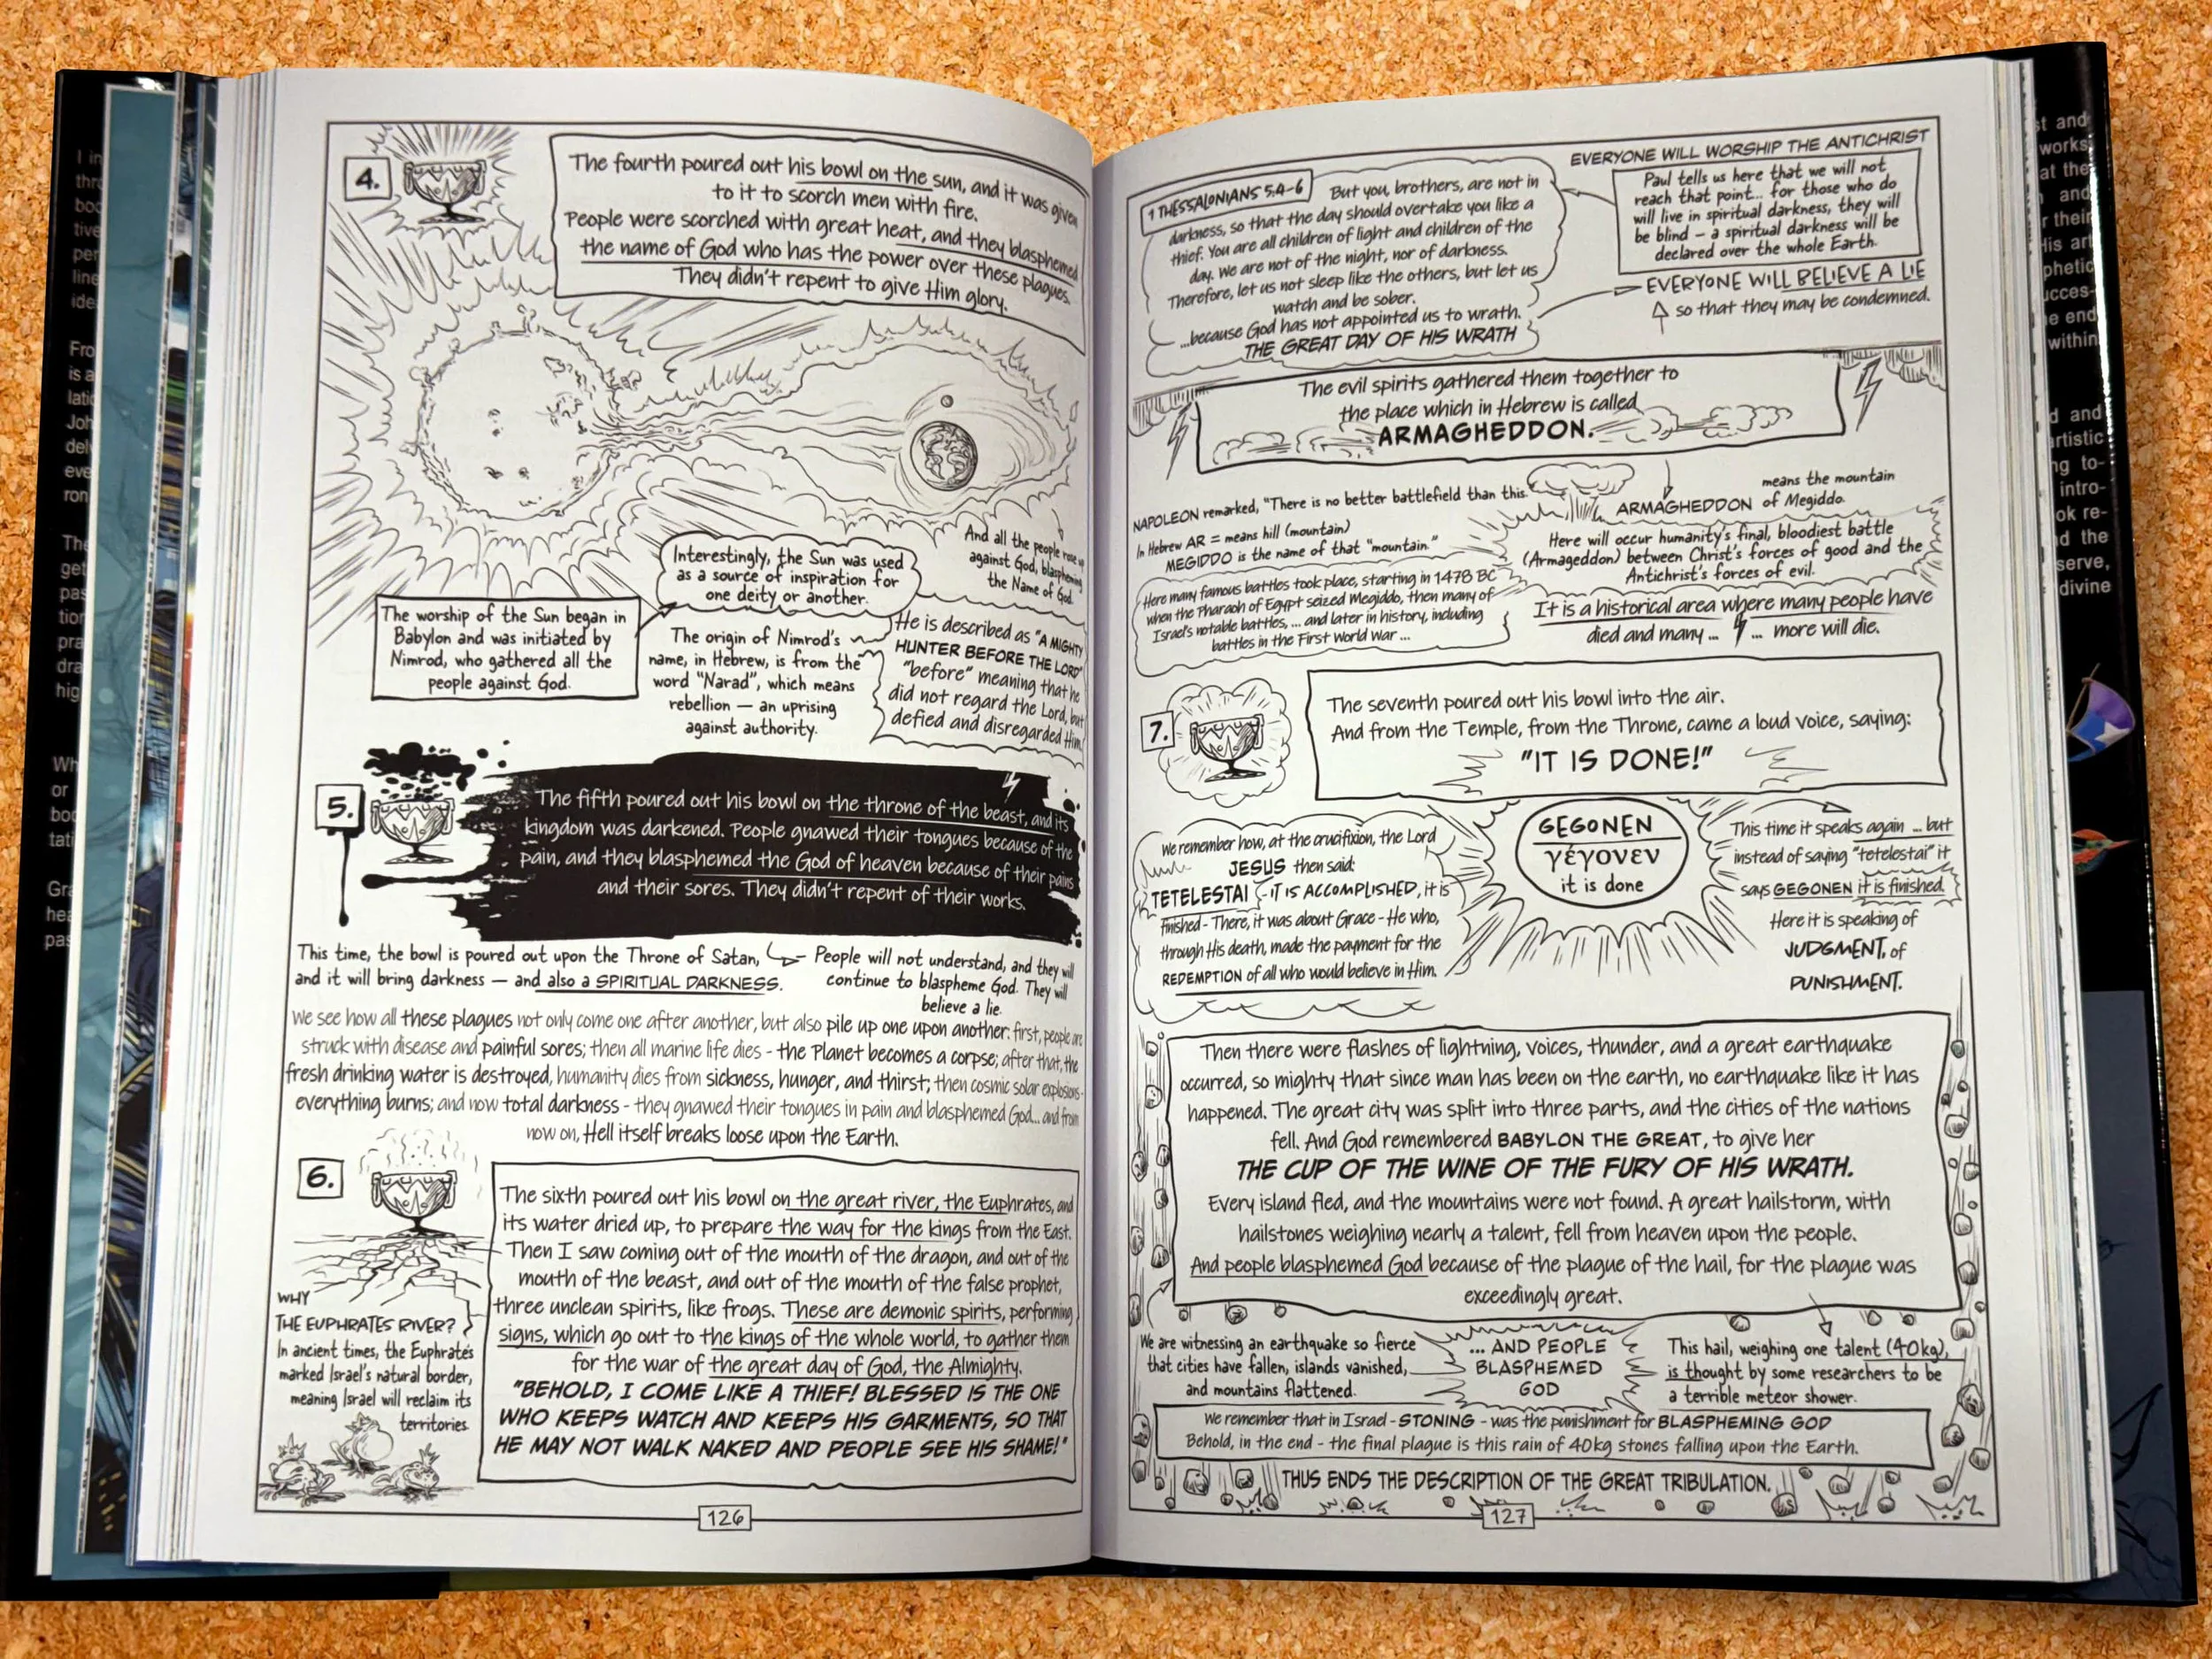 4.
The fourth poured out his bowl on the sun, and it was given
to it to scorch men with fire.
People were scorched with great heat, and they blasphemed
the name of God who has the power over these plagues.
They didn't repent to give Him glory.
And all the people rose up
against God, blaspheming
the Name of God.
Interestingly, the Sun was used
as a source of inspiration for
one deity or another.
The worship of the Sun began in
Babylon and was initiated by
Nimrod, who gathered all the
people against God.
The origin of Nimrod's
name, in Hebrew, is from the
word "Narad", which means
rebellion — an uprising
against authority.
He is described as "A MIGHTY
HUNTER BEFORE THE LORD"
"before" meaning that he
did not regard the Lord, but
defied and disregarded Him.
5.
The fifth poured out his bowl on the throne of the beast, and its
kingdom was darkened. People gnawed their tongues because of the
pain, and they blasphemed the God of heaven because of their pains
and their sores. They didn't repent of their works.
This time, the bowl is poured out upon the Throne of Satan,
and it will bring darkness — and also a SPIRITUAL DARKNESS.
People will not understand, and they will
continue to blaspheme God. They will
believe a lie.
We see how all these plagues not only come one after another, but also pile up one upon another: first, people are
struck with disease and painful sores; then all marine life dies - the Planet becomes a corpse; after that, the
fresh drinking water is destroyed, humanity dies from sickness, hunger, and thirst; then cosmic solar explosions -
everything burns; and now total darkness - they gnawed their tongues in pain and blasphemed God... and from
now on, Hell itself breaks loose upon the Earth.
6.
The sixth poured out his bowl on the great river, the Euphrates, and
its water dried up, to prepare the way for the kings from the East.
Then I saw coming out of the mouth of the dragon, and out of the
mouth of the beast, and out of the mouth of the false prophet,
three unclean spirits, like frogs. These are demonic spirits, performing
signs, which go out to the kings of the whole world, to gather them
for the war of the great day of God, the Almighty.
"BEHOLD, I COME LIKE A THIEF! BLESSED IS THE ONE
WHO KEEPS WATCH AND KEEPS HIS GARMENTS, SO THAT
HE MAY NOT WALK NAKED AND PEOPLE SEE HIS SHAME!"
WHY
THE EUPHRATES RIVER?
In ancient times, the Euphrates
marked Israel's natural border,
meaning Israel will reclaim its
territories.
126
1 THESSALONIANS 5:4-6
But you, brothers, are not in
darkness, so that the day should overtake you like a
thief. You are all children of light and children of the
day. We are not of the night, nor of darkness.
Therefore, let us not sleep like the others, but let us
watch and be sober.
...because God has not appointed us to wrath.
THE GREAT DAY OF HIS WRATH
EVERYONE WILL WORSHIP THE ANTICHRIST
Paul tells us here that we will not
reach that point... for those who do
will live in spiritual darkness, they will
be blind — a spiritual darkness will be
declared over the whole Earth.
EVERYONE WILL BELIEVE A LIE
so that they may be condemned.
The evil spirits gathered them together to
the place which in Hebrew is called
ARMAGHEDDON.
NAPOLEON remarked, "There is no better battlefield than this."
In Hebrew AR = means hill (mountain)
MEGIDDO is the name of that "mountain."
ARMAGHEDDON
means the mountain
of Megiddo.
Here many famous battles took place, starting in 1478 BC
when the Pharaoh of Egypt seized Megiddo, then many of
Israel's notable battles, ... and later in history, including
battles in the First World War ...
Here will occur humanity's final, bloodiest battle
(Armageddon) between Christ's forces of good and the
Antichrist's forces of evil.
It is a historical area where many people have
died and many ... ... more will die.
7.
The seventh poured out his bowl into the air.
And from the Temple, from the Throne, came a loud voice, saying:
"IT IS DONE!"
We remember how, at the crucifixion, the Lord
JESUS then said:
TETELESTAI - IT IS ACCOMPLISHED, it is
finished - There, it was about Grace - He who,
through His death, made the payment for the
REDEMPTION of all who would believe in Him.
GEGONEN
γέγονεν
it is done
This time it speaks again ... but
instead of saying "tetelestai" it
says GEGONEN it is finished.
Here it is speaking of
JUDGMENT, of
PUNISHMENT.
Then there were flashes of lightning, voices, thunder, and a great earthquake
occurred, so mighty that since man has been on the earth, no earthquake like it has
happened. The great city was split into three parts, and the cities of the nations
fell. And God remembered BABYLON THE GREAT, to give her
THE CUP OF THE WINE OF THE FURY OF HIS WRATH.
Every island fled, and the mountains were not found. A great hailstorm, with
hailstones weighing nearly a talent, fell from heaven upon the people.
And people blasphemed God because of the plague of the hail, for the plague was
exceedingly great.
We are witnessing an earthquake so fierce
that cities have fallen, islands vanished,
and mountains flattened.
... AND PEOPLE
BLASPHEMED
GOD
This hail, weighing one talent (40kg),
is thought by some researchers to be
a terrible meteor shower.
We remember that in Israel - STONING - was the punishment for BLASPHEMING GOD
Behold, in the end - the final plague is this rain of 40kg stones falling upon the Earth.
THUS ENDS THE DESCRIPTION OF THE GREAT TRIBULATION.
127